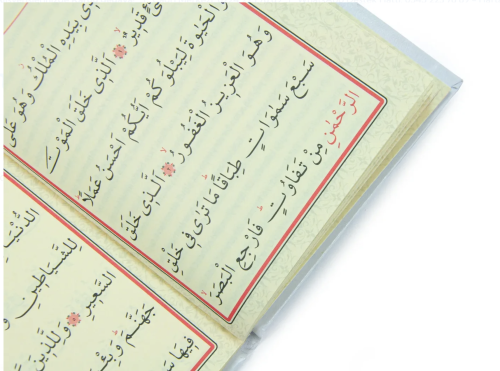 بِيَدِهِ الْمُلْكُ وَهُوَ عَلٰى
قَدِيرٌۙ ۞ اَلَّذِى خَلَقَ الْمَوْتَ
الْحَيٰوةَ لِيَبْلُوَكُمْ اَيُّكُمْ اَحْسَنُ عَمَلًا
وَهُوَ الْعَزِيزُ الْغَفُورُۙ ۞ اَلَّذِى خَلَقَ
سَبْعَ سَمٰوَاتٍ طِبَاقًا مَا تَرٰى فِى خَلْقِ
الرَّحْمٰنِ مِنْ تَفَاوُتٍ فَارْجِعِ الْبَصَرَ
الدُّنْيَا
لِلشَّيَاطِينِ
السَّعِيرِ ۞ وَلِلَّذِينَ
جَهَنَّمَ
فِيهَا